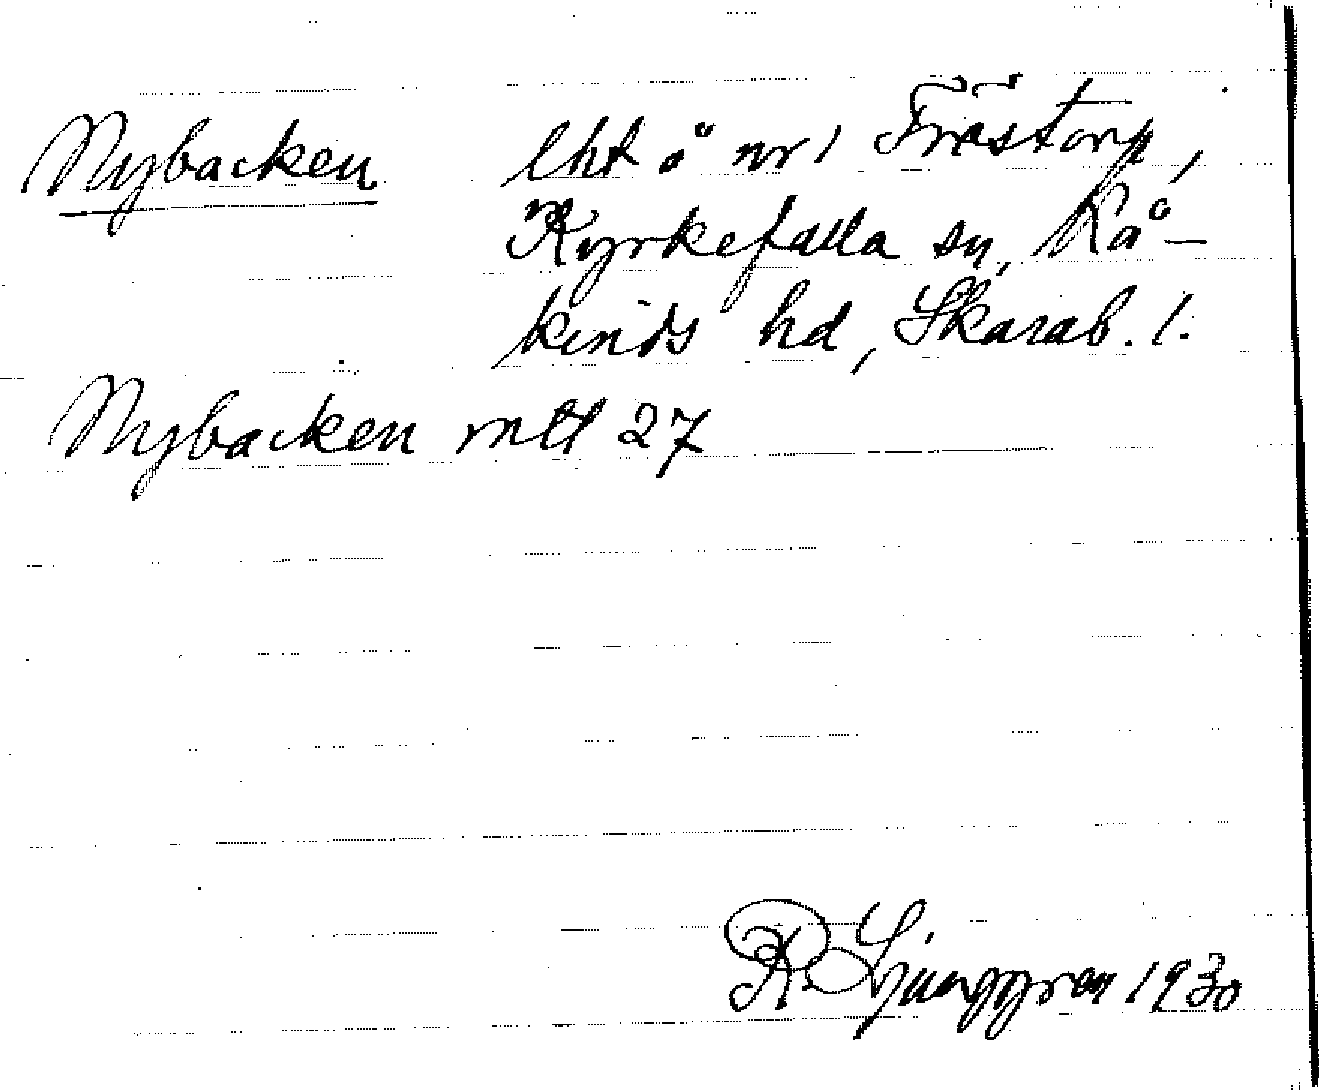 Nybacken lht å nr 1 Frästorp,
Kyrkefalla sn, Kå-
kinds hd, Skarab. l.
Nybacken mtl 27
R. Ljunggren 1930